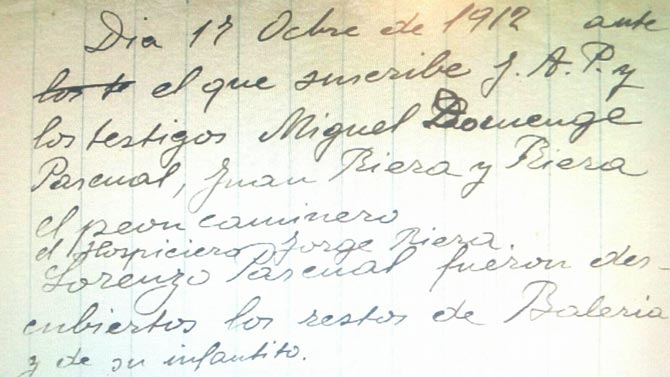 Dia 17 Octbre de 1912 ante
los t el que suscribe J. A. P. y
los testigos Miguel Domenge
Pascual, Juan Riera y Riera
el peon caminero
el Hospiciero Jorge Riera
Lorenzo Pascual fueron des-
cubiertos los restos de Baleria
y de su infantito.